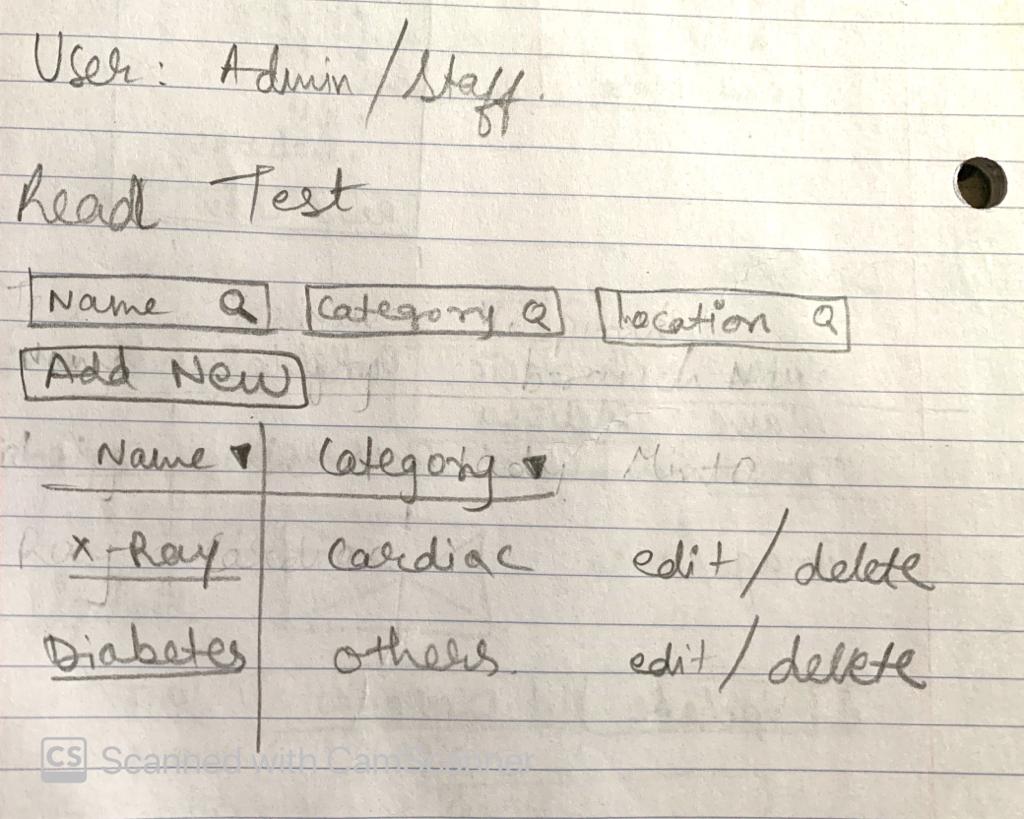 User: Admin/Staff.
Read Test
Name Category Location
Add New
Name Category
X-Ray Cardiac edit/delete
Diabetes others. edit/delete
CS Scanned with CamScanner